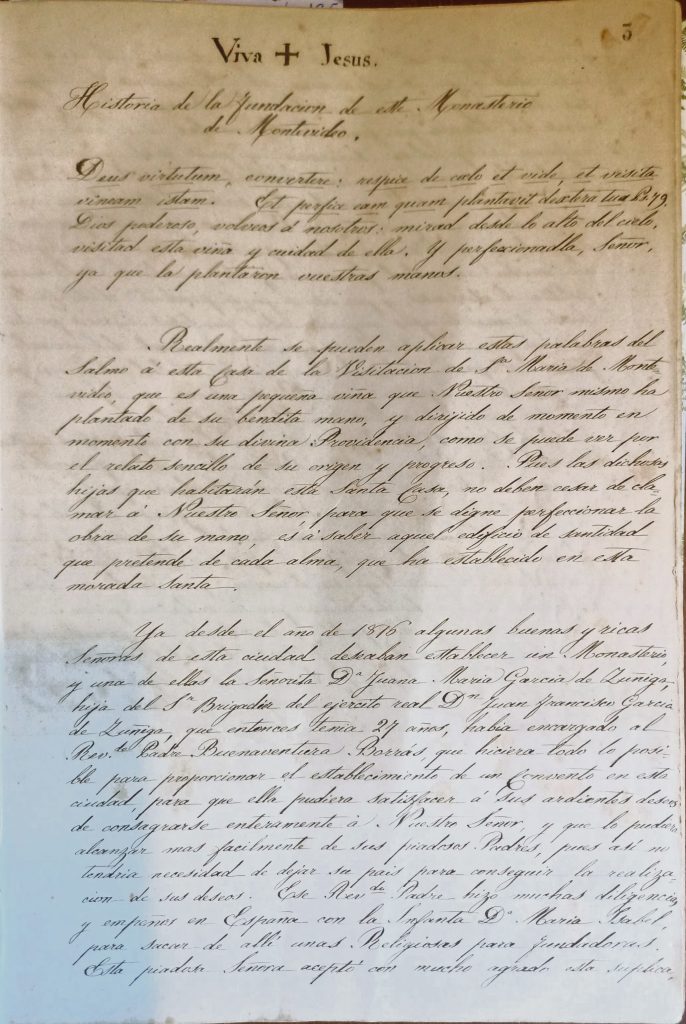 5
Viva + Jesus.
Historia de la fundacion de este Monasterio
de Montevideo.
Deus virtutum, convertere: respice de cœlo et vide, et visita
vineam istam. Et perfice eam quam plantavit dextera tua Ps. 79.
Dios poderoso, volveros á nosotros: mirad desde lo alto del cielo,
visitad esta viña y cuidad de ella. Y perfeccionadla, Señor,
ya que la plantaron vuestras manos.
Realmente se pueden aplicar estas palabras del
Salmo á esta Casa de la Visitacion de Sta Maria de Monte-
video, que es una pequeña viña que Nuestro Señor mismo ha
plantado de su bendita mano, y dirijido de momento en
momento con su divina Providencia, como se puede ver por
el relato sencillo de su origen y progreso. Pues las dichosas
hijas que habitarán esta Santa Casa, no deben cesar de cla-
mar á Nuestro Señor para que se digne perfeccionar la
obra de su mano, és á saber aquel edificio de santidad
que pretende de cada alma, que ha establecido en esta
morada santa.
Ya desde el año de 1816 algunas buenas y ricas
Señoras de esta ciudad deseaban establecer un Monasterio,
y una de ellas la Señorita Da Juana Maria Garcia de Zuñiga,
hija del Sr Brigadir del ejercito real Dn Juan Francisco Garcia
de Zuñiga, que entonces tenia 27 años, habia encargado al
Rev.do Padre Buenaventura Borrás, que hiciera todo lo posi-
ble para proporcionar el establecimiento de un Convento en esta
ciudad, para que ella pudiera satisfacer á sus ardientes deseos
de consagrarse enteramente á Nuestro Señor, y que lo pudiera
alcanzar mas facilmente de sus piadosos Padres, pues asi no
tendria necesidad de dejar su pais para conseguir la realiza-
cion de sus deseos. Ese Rev.do Padre hizo muchas diligencias
y empeños en España con la Infanta Da Maria Isabel,
para sacar de allí unas Religiosas para fundadoras.
Esta piadosa Señora aceptó con mucho agrado esta suplica,